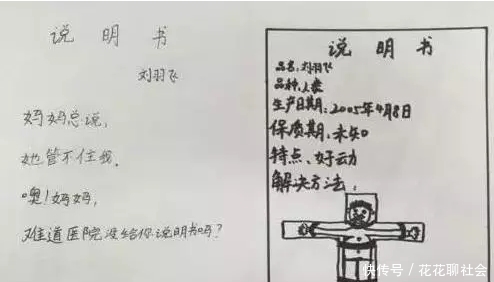 说明书
刘羽飞
妈妈总说，
她管不住我。
噢！妈妈，
难道医院没给你说明书吗？
说明书
品名：刘羽飞
品种：人类
生产日期：2005年4月8日
保质期：未知
特点：好动
解决方法：
快传号/花花聊社会